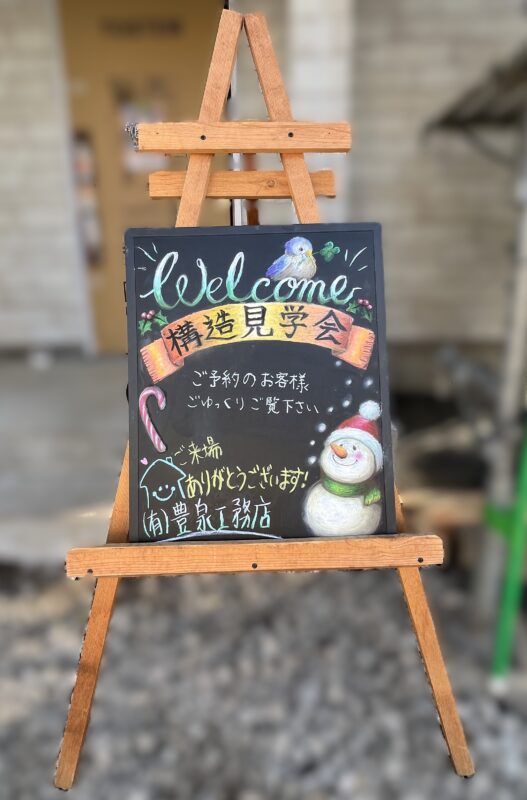 Welcome
構造見学会
ご予約のお客様
ごゆっくりご覧下さい
ご来場
ありがとうございます!
(有)豊泉工務店